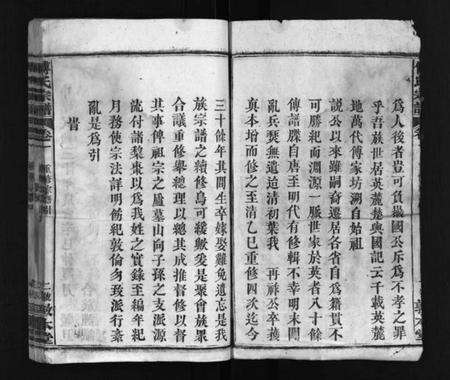 為人後者豈可負𡾰國公斥為不孝之罪
乎吾族世居英麓楚輿國記云千載英麓
地萬代傅家坊溯自始祖
説公以來雖嗣裔遷居各省自為籍貫不
可勝紀而淵源一脈世家於英者八十餘
傳譜牒自唐至明代有修輯不幸明末闖
亂兵燹無遺迨清初業我 再祥公卒莪
真本增而修之至清乙巳重修四次迄今
三十餘年其間生卒嫁娶難免遺忘是我
族宗譜之續修烏可緩歟爰是聚會族眾
合議重修舉總理以總其成推督修以督
其事俾祖宗之廬墓山向子孫之支派源
流付諸棃棗以為我姓之實錄至編年紀
月務使宗法詳明倫紀敦倫勿致派行紊
亂是為引
旹